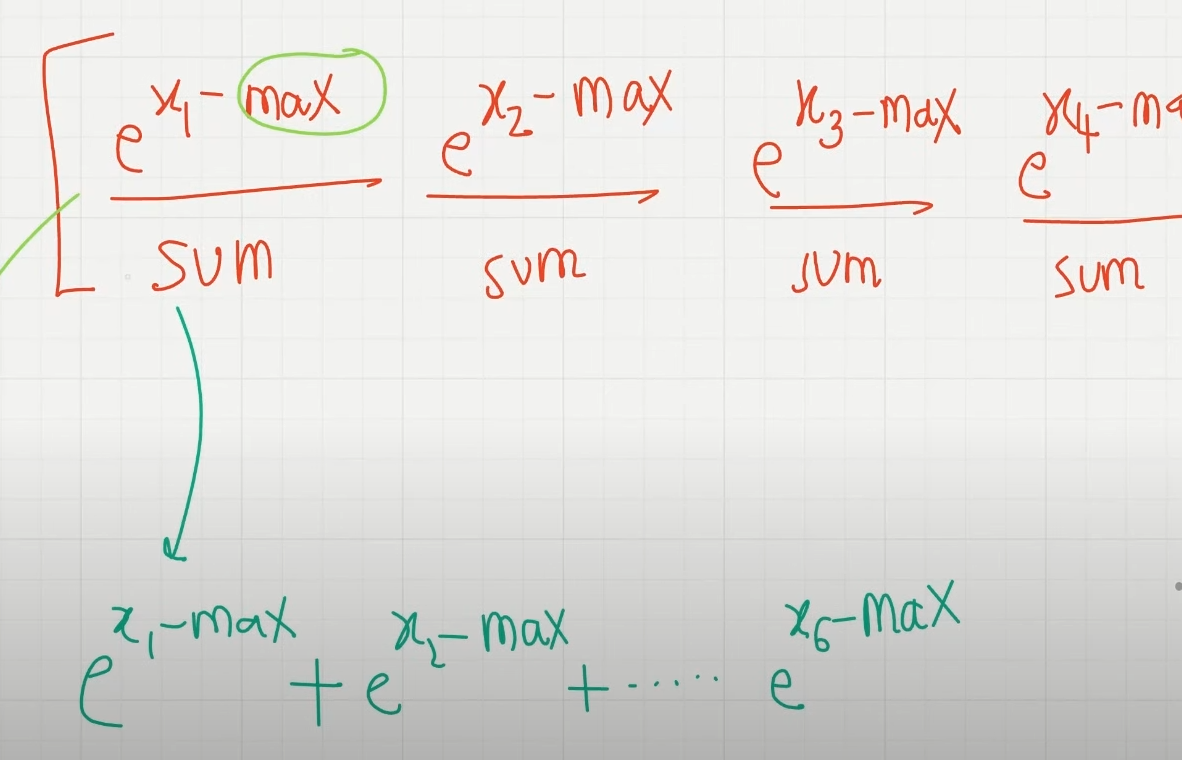 [ e^{x₁ - max} / sum e^{x₂ - max} / sum e^{x₃ - max} / sum e^{x₄ - ma / sum
e^{x₁ - max} + e^{x₂ - max} + ······ e^{x₆ - max}